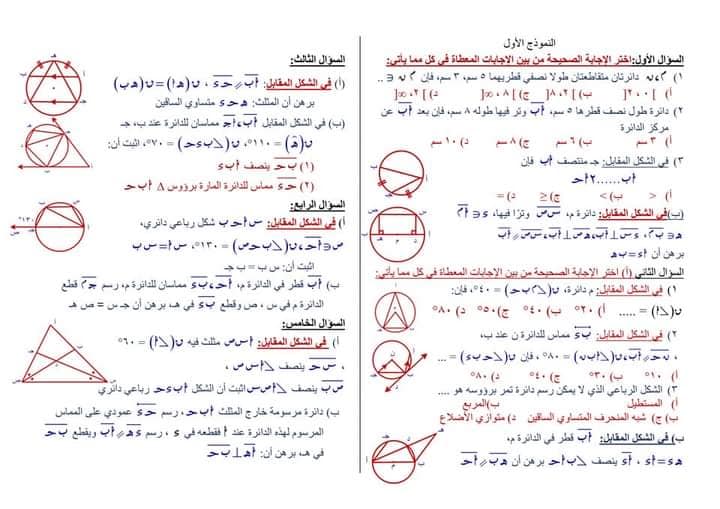 النموذج الأول
السؤال الأول: اختر الإجابة الصحيحة من بين الاجابات المعطاة في كل مما يأتي:
١) م، ن دائرتان متقاطعتان طولا نصفي قطريهما ٥ سم، ٣ سم، فإن م ن ∋ ..
أ) ]٠، ٢[ ب) ]٢، ٨[ ج) ]٨، ∞[ د) ]٢، ∞[
٢) دائرة طول نصف قطرها ٥ سم، أب وتر فيها طوله ٨ سم، فإن بعد أب عن
مركز الدائرة
أ) ٣ سم ب) ٦ سم ج) ٨ سم د) ١٠ سم
٣) في الشكل المقابل: جـ منتصف أب فإن
أب ......٢ أحـ
أ) < ب) > ج) ≤ د) =
(ب) في الشكل المقابل: دائرة م، س ص وترًا فيها، ء ∋ أم
هـ ∋ ب م، ء س ⊥ أب، هـ ص ⊥ أب، س ص // أب
برهن أن أء = ب هـ
السؤال الثاني: (أ) اختر الإجابة الصحيحة من بين الإجابات المعطاة في كل مما يأتي:
١) في الشكل المقابل: م دائرة، ن(∠م ب حـ) = ٤٠°، فإن:
ن(∠أ) = ..... أ) ٢٠° ب) ٤٠° ج) ٥٠° د) ٨٠°
٢) في الشكل المقابل: ب ء مماس للدائرة ن عند ب،
، ن حـ // أب، ن(∠أن ب) = ٨٠°، فإن ن(∠حـ ب ء) = ...
أ) ١٠° ب) ٣٠° ج) ٤٠° د) ٨٠°
٣) الشكل الرباعي الذي لا يمكن رسم دائرة تمر برؤوسه هو ....
أ) المستطيل ب) المربع
ب) ج) شبه المنحرف المتساوي الساقين د) متوازي الأضلاع
ب) في الشكل المقابل: أب قطر في الدائرة م،
هـ ء = أء ، أء ينصف ∠ب أحـ برهن أن هـ ب // أحـ
السؤال الثالث:
(أ) في الشكل المقابل: أب // حـ ء ، ن(هـ أ) = ن(هـ ب)
برهن أن المثلث: هـ حـ ء متساوي الساقين
(ب) في الشكل المقابل أب، أجـ مماسان للدائرة عند ب، جـ
ن(هـ) = ١١٠°، ن(∠ب ء حـ) = ٧٠°، اثبت أن:
(١) ب حـ ينصف أب ء
(٢) حـ ء مماس للدائرة المارة برؤوس Δ أب حـ
السؤال الرابع:
أ) في الشكل المقابل: س أحـ ب شكل رباعي دائري،
ص ∋ أحـ، ن(∠ب حـ ص) = ١٣٠°، س أ = س ب
اثبت أن: س ب = ب جـ
ب) أب قطر في الدائرة م، أحـ، ب ء مماسان للدائرة م، رسم جـ م يقطع
الدائرة م في س ، ص وقطع ب ء في هـ، برهن أن جـ س = ص هـ
السؤال الخامس:
أ) في الشكل المقابل: أ س ص مثلث فيه ن(∠أ) = ٦٠°
، س حـ ينصف ∠أ س ص ،
ص ب ينصف ∠أ ص س اثبت أن الشكل أب ء حـ رباعي دائري
ب) دائرة مرسومة خارج المثلث أب حـ، رسم حـ ء عمودي على المماس
المرسوم لهذه الدائرة عند أ فقطعه في ء ، رسم ء هـ // أب ويقطع ب حـ
في هـ، برهن أن: أهـ ⊥ ب حـ